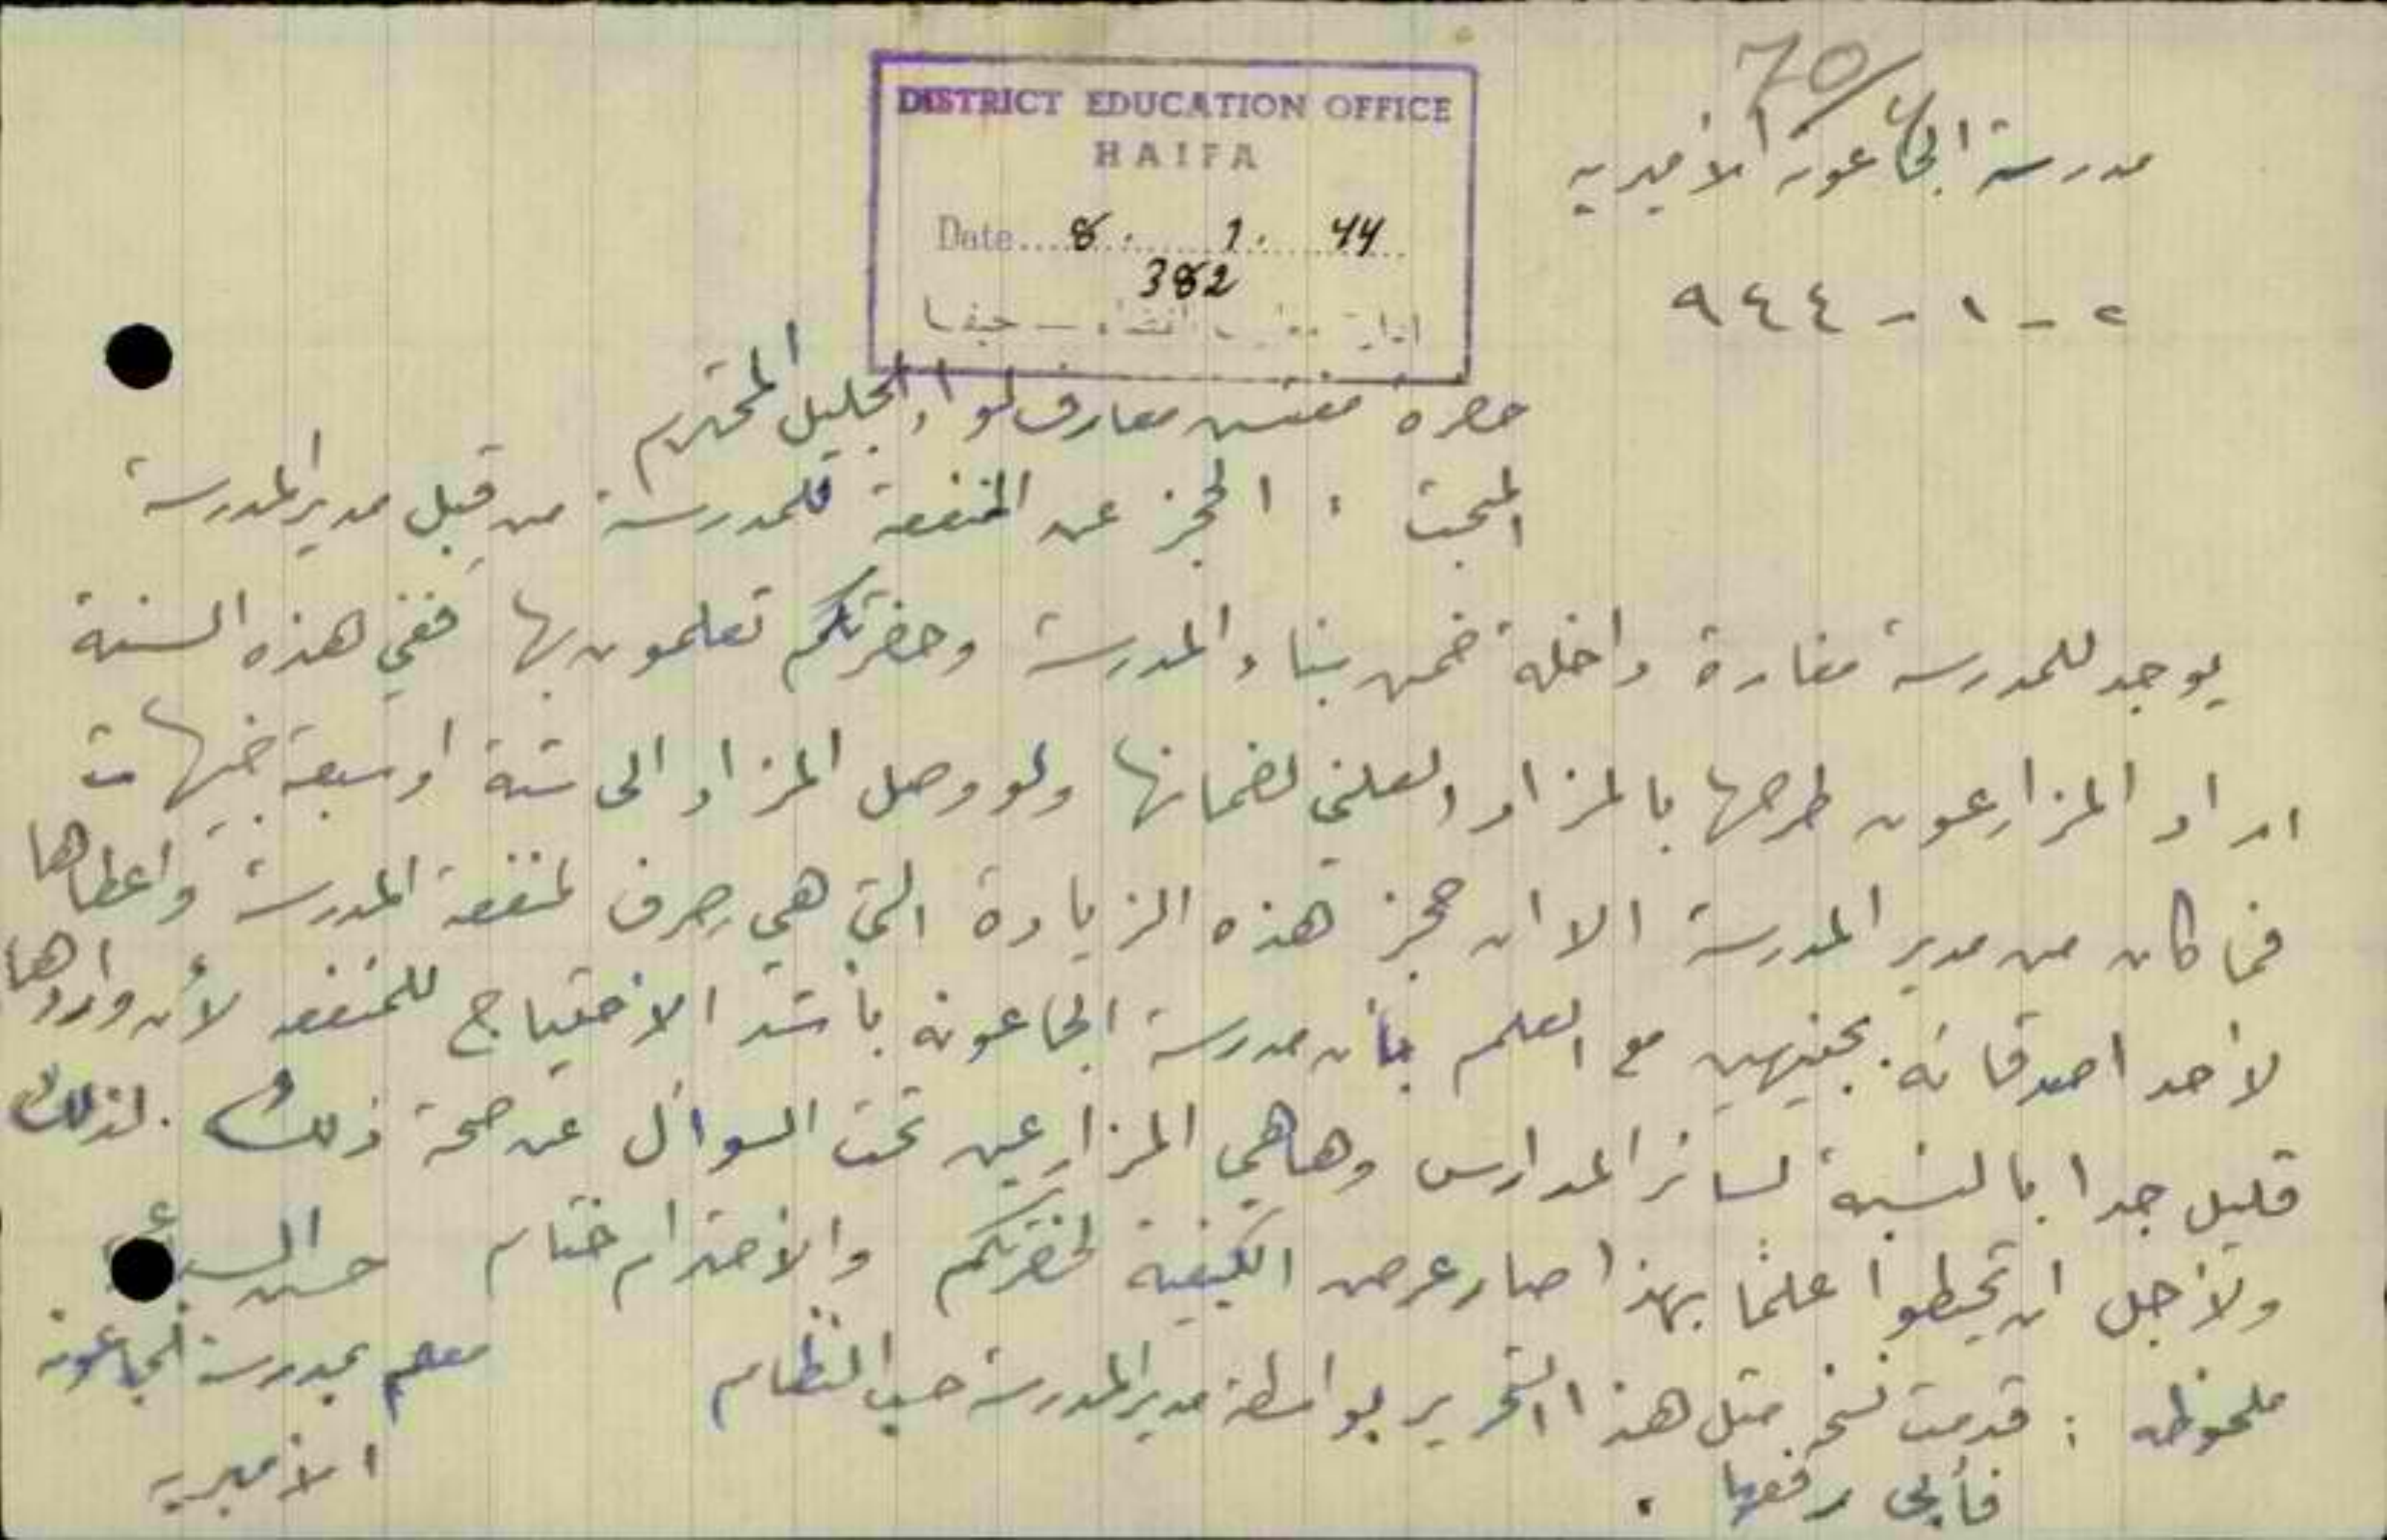 70/
مدرسة الجاعونه الأميريه
٢ - ١ - ٩٤٤
DISTRICT EDUCATION OFFICE
HAIFA
Date.... 8. 1. 44
382
حيفا
حضرة مفتش معارف لواء الجليل المحترم
المبحث : الحجز عن المنفعة للمدرسة من قبل مدير المدرسة
يوجد للمدرسة مغارة داخلة ضمن بناء المدرسة وحضرتكم تعلمون بها ففي هذه السنة
اراد المزارعون طرحها بالمزاد العلني لضمانها ولو وصل المزاد الى ستة او سبعة جنيهات
فما كان من مدير المدرسة الا ان حجز هذه الزيادة التي هي صرف لمنفعة المدرسة واعطاها
لأحد اصدقائه بجنيهين مع العلم بأن مدرسة الجاعونه بأشد الاحتياج للمنفعه لأن واردها
قليل جدا بالنسبة لسائر المدارس وهاهي المزارعين تحت السوأل عن صحة ذلك . لذلك
ولأجل ان تحيطوا علمًا بهذا صار عرض الكيفية لحضرتكم والأحترام ختام
حسن
معلم بمدرسة الجاعونه
الأميريه
ملحوظه : قدمت نسخ مثل هذا التحرير بواسطة مدير المدرسة حسب النظام
فأبى رفعها .